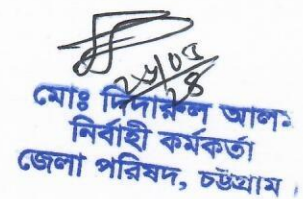 ২৮/০৫
২৪
মোঃ দিদারুল আলম
নির্বাহী কর্মকর্তা
জেলা পরিষদ, চট্টগ্রাম।